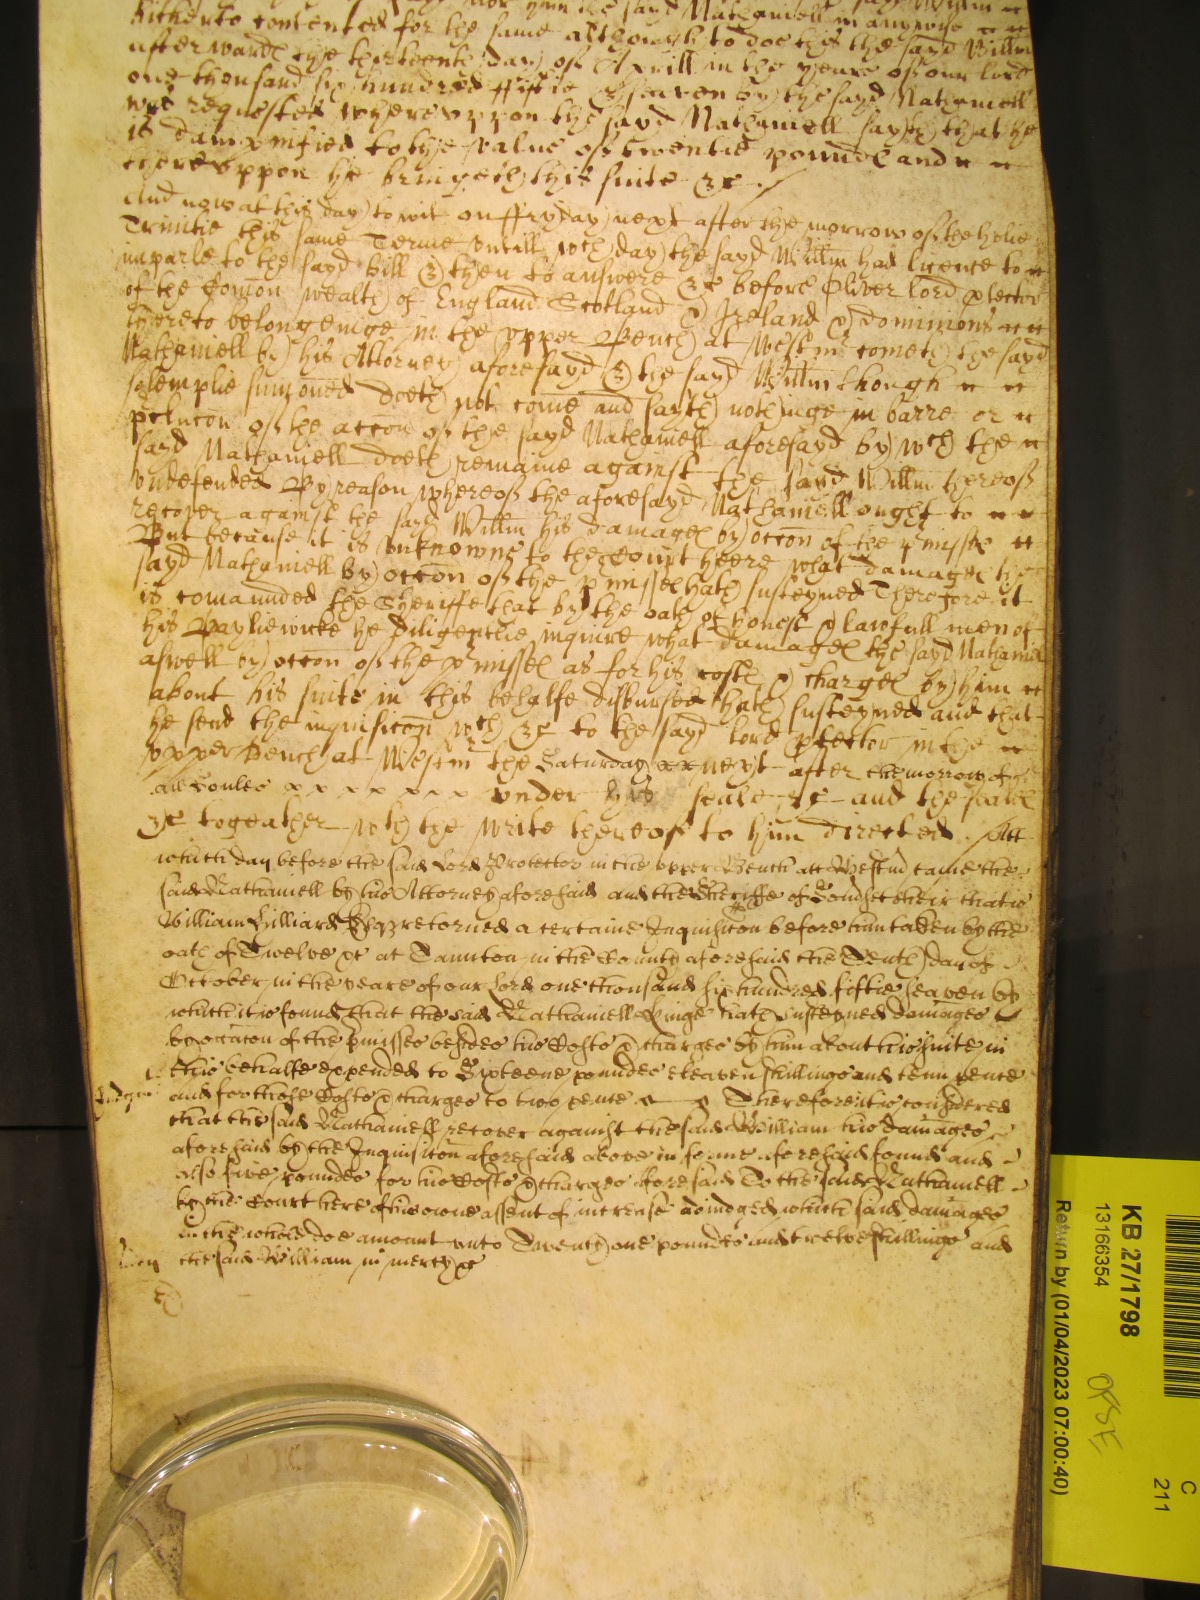 nor him the sayd Nathaniell in anywise
hitherto contented for the same although to doe this the sayd Willm
afterwards the thirteenth day of Aprill in the yeare of our lord
one thousand six hundred ffiftie & seaven by the sayd Nathaniell
was requested whereuppon the sayd Nathaniell sayth that he
is dampnified to the value of twentie pounds and
thereuppon he bringeth this suite &c
And now at this day to wit on ffryday next after the morrow of the holie
Trinitie this same Terme untill wch day the sayd Willm had licence to
imparle to the sayd bill & then to answere &c before Oliver lord ptector
of the Comon wealth of England Scotland & Ireland & dominions
thereto belongeinge in the upper Bench at Westmr cometh the sayd
Nathaniell by his Attorney aforesayd & the sayd Willm though
solemplie sumoned doeth not come and sayth nothinge in barre or
pclucon of the accon of the sayd Nathaniell aforesayd by wch the
sayd Nathaniell doeth remaine against the sayd Willm thereof
undefended By reason whereof the aforesayd Nathaniell ought to
recover against the sayd Willm his damages by occon of the pmisses
But because it is unknowne to the Court heere what damages the
sayd Nathaniell by occon of the pmisses hath susteyned Therefore it
is comaunded the Sheriffe that by the oath of honest & lawfull men of
his Bayliewicke he diligentlie inquire what damages the sayd Nathaniell
aswell by occon of the pmisses as for his costs & charges by him
about his suite in this behalfe disbursed hath susteyned and that
he send the inquisicon wch &c to the sayd lord ptector in the
upper Bench at Westmr the Saturday xx next after the morrow of
all Soules x x x x x x x under his seale &c and the seales
&c togeather wth the write thereof to him directed. Att
which day before the said Lord Protector in the upper Bench att Westmr came the
said Nathaniell by his Attorney aforesaid and the Sheriffe of Somset their that is
William Hilliard Esqr retorned a certaine Inquisicon before him taken by the
oath of Twelve &c at Taunton in the County aforesaid the Tenth day of
October in the yeare of our Lord one thousand six hundred fiftie seaven by
which it is found that the said Nathaniell Kinge hath susteyned damages
by occacon of the pmisses besides his Costs & charges by him about his suite in
this behalfe expended to Sixteene poundes eleaven shillings and tenn pence
Judgmt and for those Costs & charges to two pence Therefore it is considered
that the said Nathaniell recover against the said William his damages
aforesaid by the Inquisicon aforesaid above in forme aforesaid found and
also five poundes for his Costs & charges aforesaid To the said Nathaniell
by the Court here of his owne assent of increase adiudged which said damages
in the whole doe amount unto Twenty one poundes and twelve shillings and
the said William in mercy &c
KB 27/1798
13166354
Return by (01/04/2023 07:00:40)
C
211